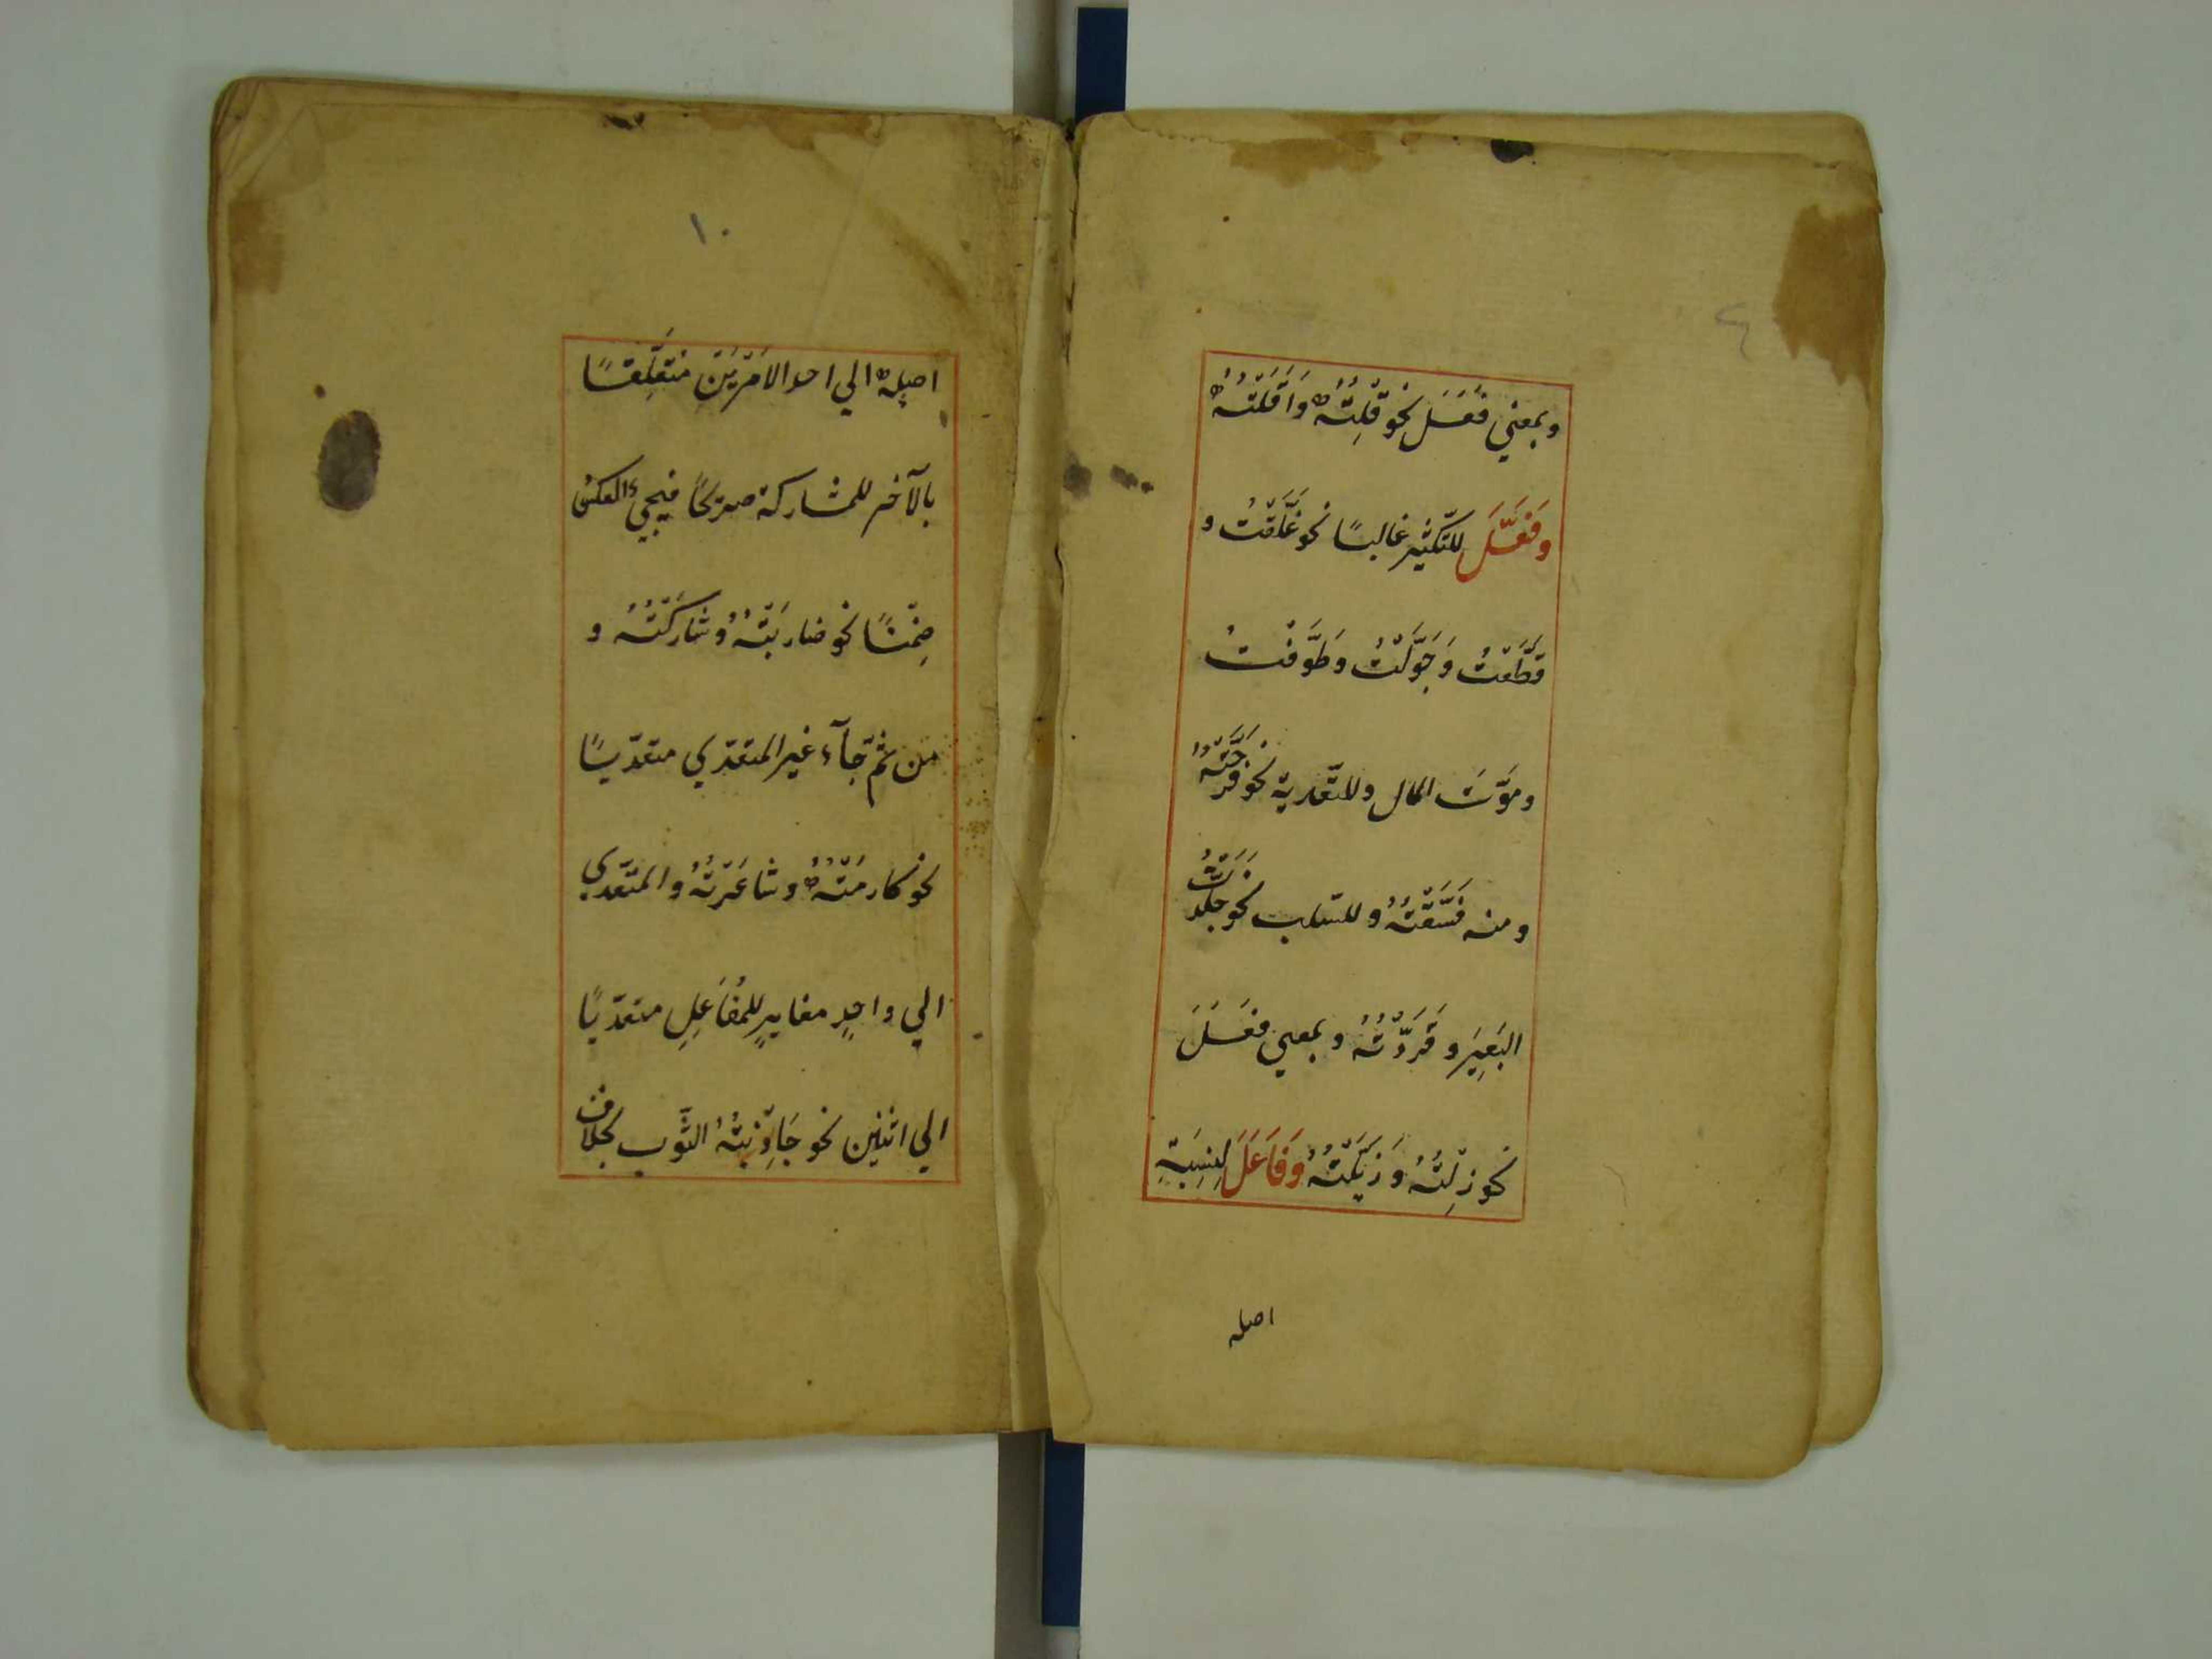 وبمعني فَعَلَ نحو قِلْتُهُ وَاَقَلْتُهُ
وَفَعَّلَ للتّكثير غالبًا نحو غَلَّقْتُ و
قَطَّعْتُ وَجَوَّلْتُ وطَوَّفْتُ
وموَّتَ المال وللتّعدية نحو فَرَّحْتُهُ
ومنه فَسَّقْتُهُ وللسّلب نحو جَلَّدْتُ
البَعِيَر وقَرَّدْتُهُ وبمعني فَعَلَ
نحو زِلْتُهُ وَزَيَّلْتُهُ وَفَاعَلَ لِنِسْبَةِ
اصله
١٠
اصلِهِ الي احد الاَمْرَيْنِ متعَلِّقًا
بالآخر للمشاركة صريحًا فيجئ العكس
ضِمْنًا نحو ضاربْتُهُ وشارَكْتُهُ و
من ثمّ جآء غير المتعدّي متعدّيًا
نحو كارمْتُهُ وشاعَرْتُهُ والمتعّدي
الي واحِدٍ مغايرٍ للمُفَاعِلِ متعدّيًا
الي اثنين نحو جَاذبْتُهُ الثَّوب بخلاف